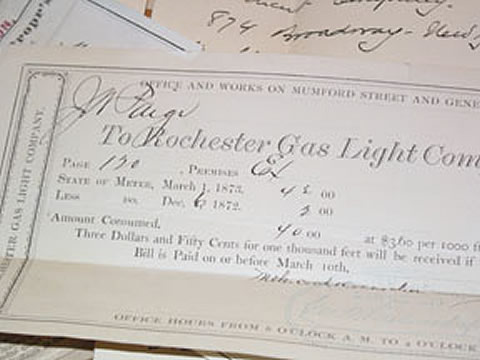 874 Broadway - New
OFFICE AND WORKS ON MUMFORD STREET AND GENE
J W Paige
To Rochester Gas Light Com
PAGE 130 , PREMISES Ex
STATE OF METER, March 1, 1873. 4 00
LESS DO. Dec. 6, 1872. 00
Amount Consumed, 40 00 at $3.60 per 1000 f
Three Dollars and Fifty Cents for one thousand feet will be received if
Bill is Paid on or before March 10th,
OFFICE HOURS FROM 8 O'CLOCK A. M. TO 4 O'CLOCK
TER GAS LIGHT COMPANY.